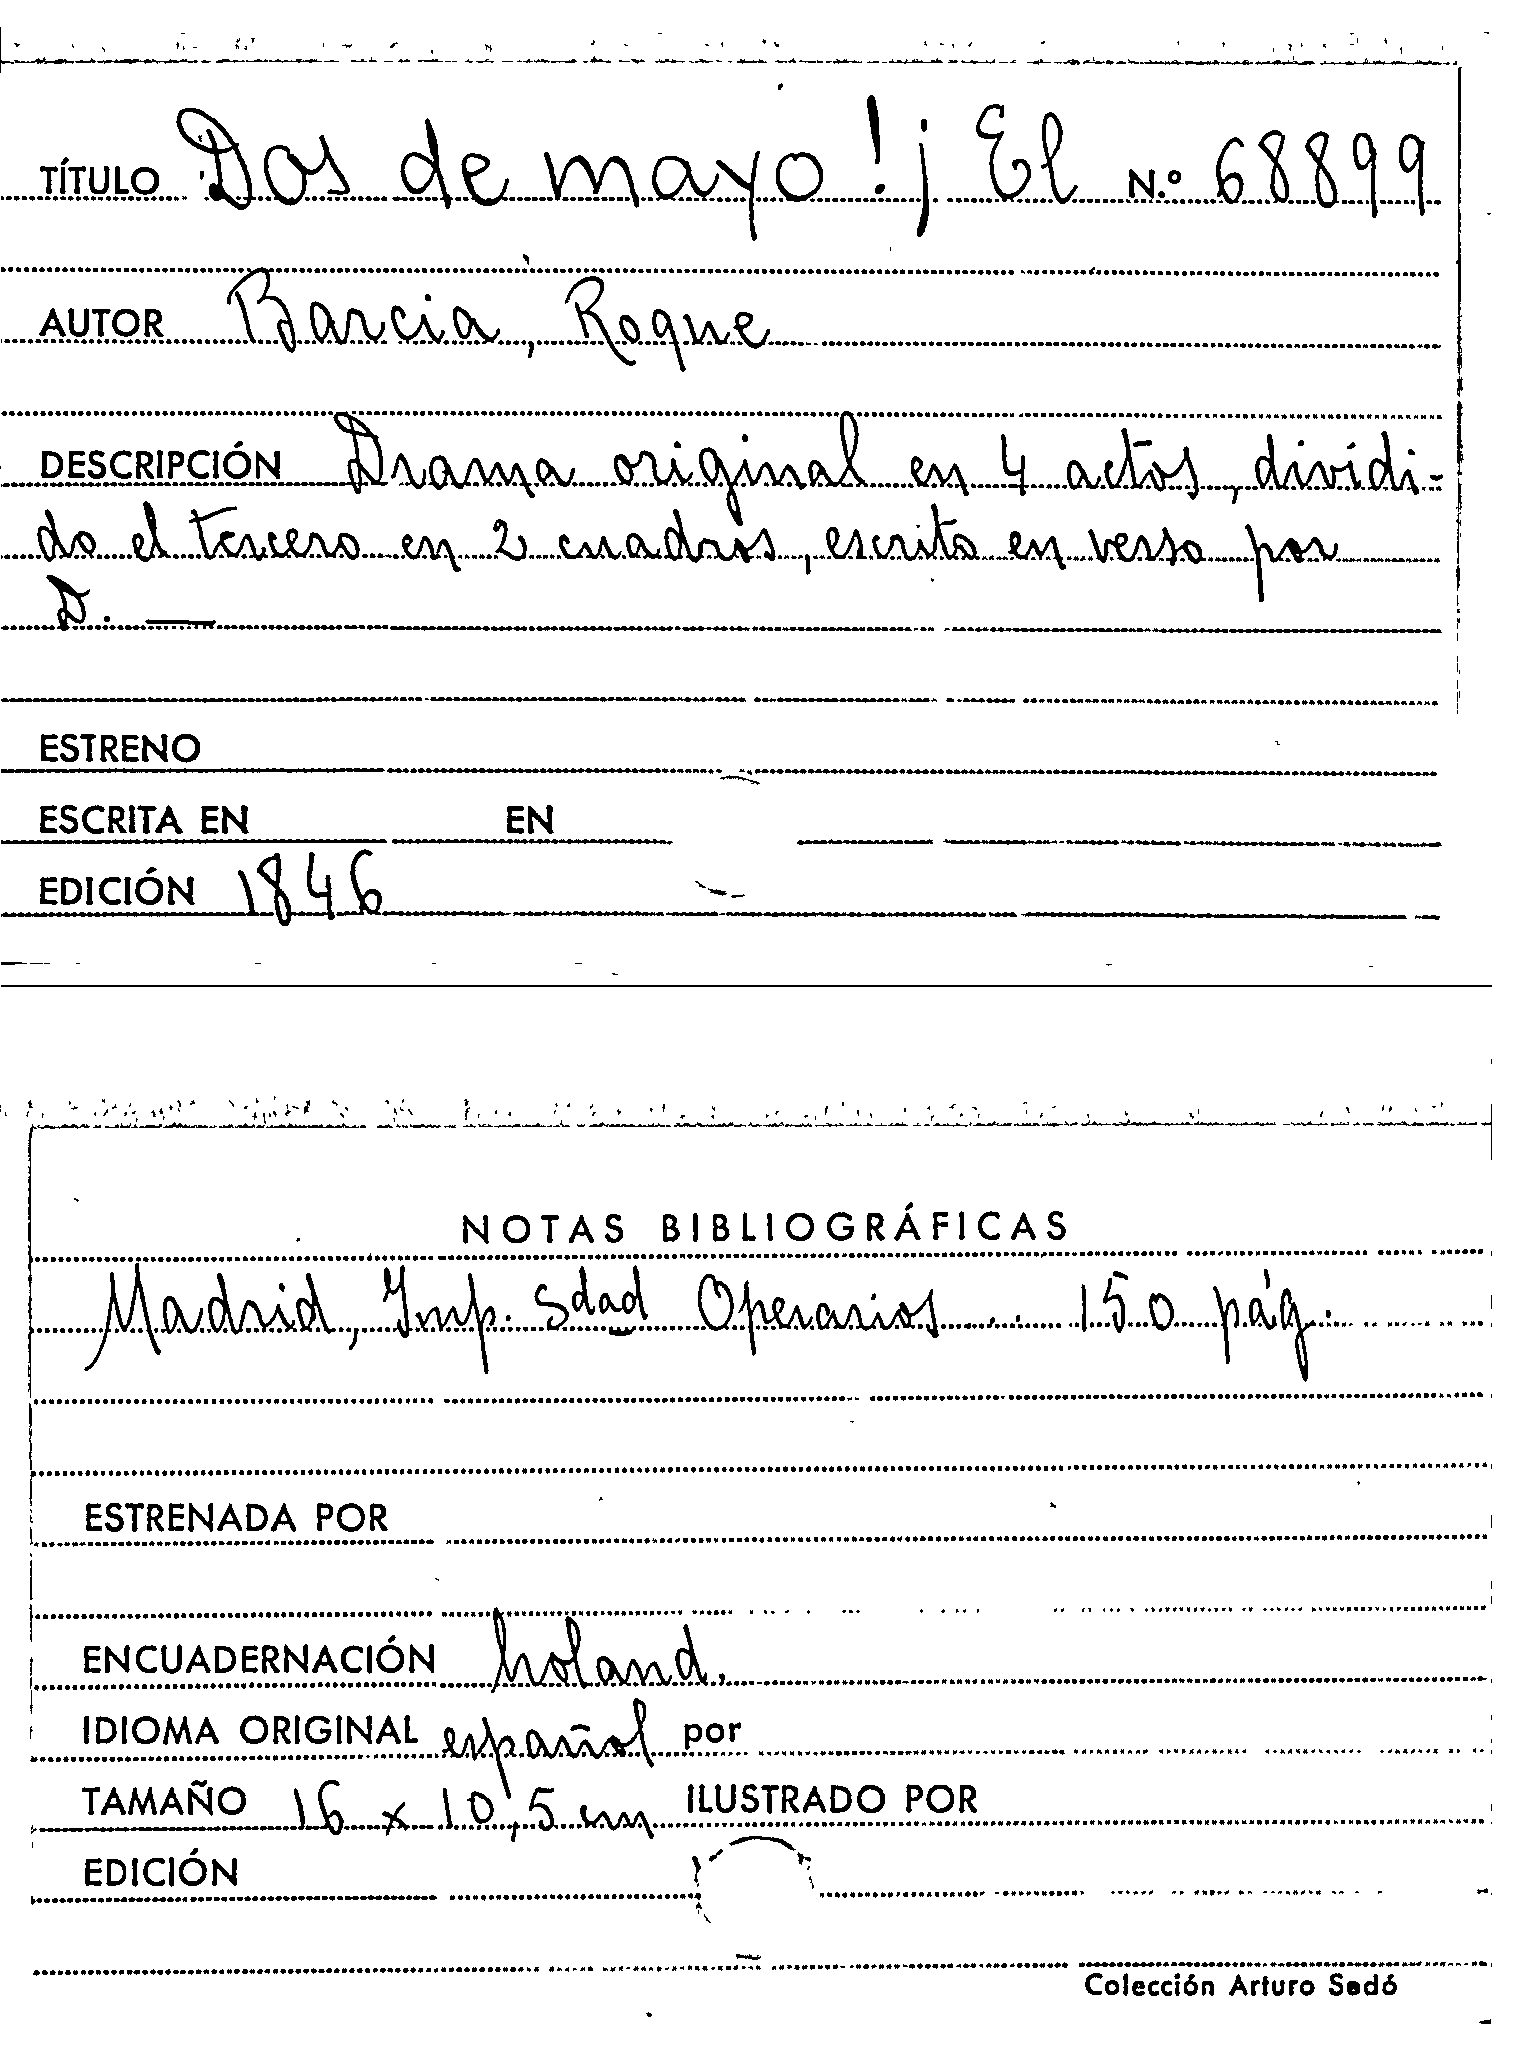 TÍTULO Dos de mayo! ¡El N.º 68899
AUTOR Barcia, Roque
DESCRIPCIÓN Drama original en 4 actos, dividi-
do el tercero en 2 cuadros, escrito en verso por
D. —
ESTRENO
ESCRITA EN EN
EDICIÓN 1846
NOTAS BIBLIOGRÁFICAS
Madrid, Imp. Sdad Operarios .. 150 pág.
ESTRENADA POR
ENCUADERNACIÓN holand.
IDIOMA ORIGINAL español por
TAMAÑO 16 x 10,5 cm ILUSTRADO POR
EDICIÓN
Colección Arturo Sedó